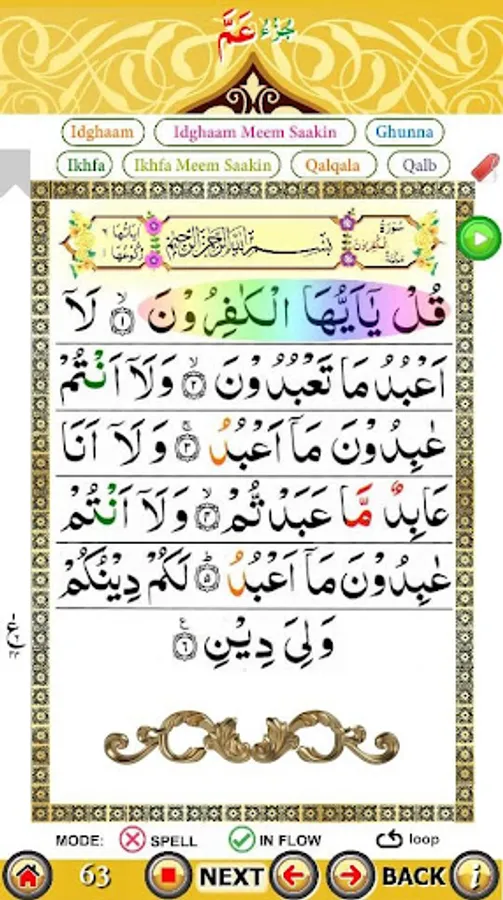 جُزْءُ عَمَّ
Idghaam Idghaam Meem Saakin Ghunna
Ikhfa Ikhfa Meem Saakin Qalqala Qalb
سُوْرَةُ الْكٰفِرُوْنَ
بِسْمِ اللّٰهِ الرَّحْمٰنِ الرَّحِيْمِ
قُلْ يٰٓاَيُّهَا الْكٰفِرُوْنَ ۙ﴿١﴾ لَآ
اَعْبُدُ مَا تَعْبُدُوْنَ ۙ﴿٢﴾ وَلَآ اَنْتُمْ
عٰبِدُوْنَ مَآ اَعْبُدُ ۚ﴿٣﴾ وَلَآ اَنَا
عَابِدٌ مَّا عَبَدْتُّمْ ۙ﴿٤﴾ وَلَآ اَنْتُمْ
عٰبِدُوْنَ مَآ اَعْبُدُ ؕ﴿٥﴾ لَكُمْ دِيْنُكُمْ
وَلِىَ دِيْنِ ﴿٦﴾
MODE: SPELL IN FLOW loop
63 NEXT BACK i